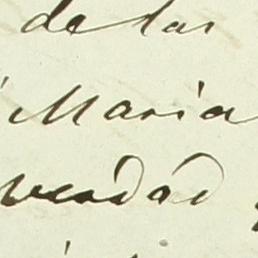 de las
Maria
verdad